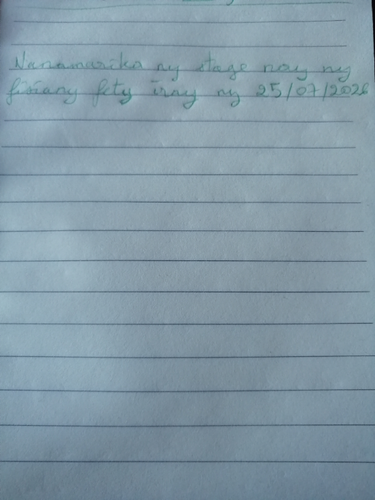 Nanamarika ny stage nay ny
fety iray ny 25/07/2026